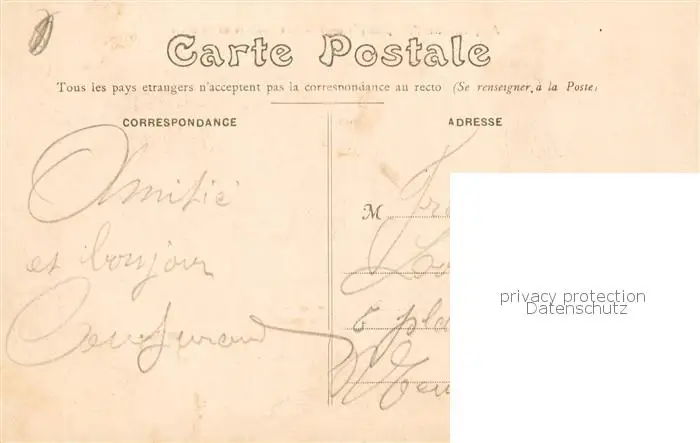 Carte Postale
Tous les pays etrangers n'acceptent pas la correspondance au recto (Se renseigner à la Poste)
CORRESPONDANCE
ADRESSE
Amitié
et bonjour
M
5 pla
privacy protection
Datenschutz